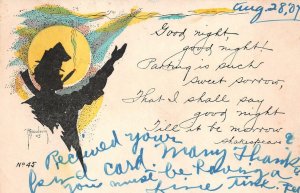 Aug 28, '07
Good night,
good night!
Parting is such
sweet sorrow,
That I shall say
good night
Till it be morrow
Shakespeare
No 45
Received your
card. Many thanks
you must be having a
fine time.